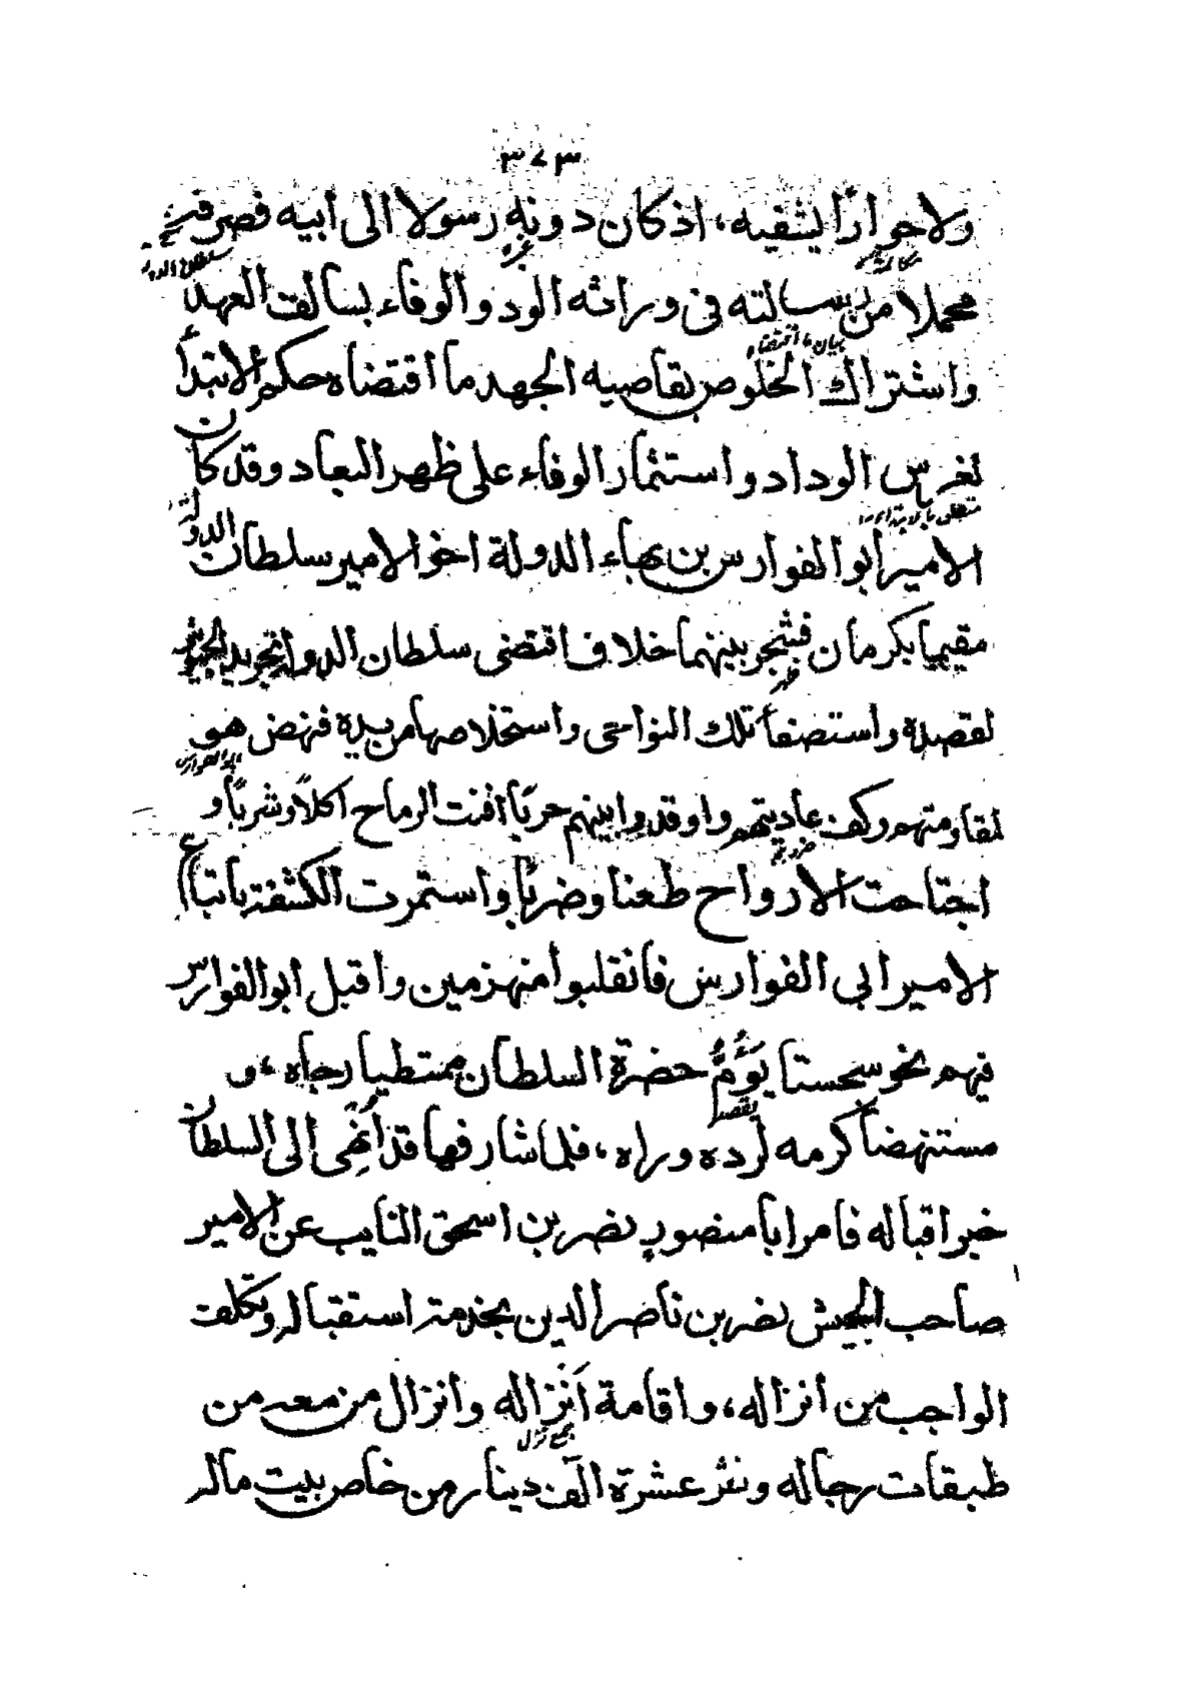 ٣٧٣
ولا حوارًا يشفيه، اذ كان دونه رسولا الى أبيه فصرفه
سلطان الدولة
محملا من رسالته فى وراثه الود والوفاء بسالف العهد
بيان ما اقتضاه
واشتراك الخلوص بقاصيه الجهد ما اقتضاه حكم الابتدأ
لغرس الوداد واستثمار الوفاء على ظهر البعاد وقد كان
متعلق بالابتداء
الامير أبو الفوارس بن بهاء الدولة اخو الامير سلطان الدولة
مقيما بكرمان فشجر بينهما خلاف اقتضى سلطان الدولة تجريد الجيوش
ظهر
لقصده واستصفأ تلك النواحى واستخلاصها من يده فنهض هو
ابو الفوارس
لمقاومتهم وكف عاديتهم واوقدوا بينهم حربًا افنت الرماح اكلاً وشربًا و
اجتاحت الارواح طعنا وضربًا واستمرت الكشفة باتباع
الامير ابى الفوارس فانقلبوا منهزمين واقبل أبو الفوارس
فيهم نحو سجستان يَؤُمُّ حضرة السلطان ممتطيا رجاه، و
يقصد
مستنهضاً كرمه لرده وراه، فلما شارفها قد أُنهِى الى السلطان
خبر اقباله فامر ابا منصور نصر بن اسحق النايب عن الامير
صاحب الجيش نصر بن ناصر الدين بخدمة استقباله وتكلف
الواجب من أنزاله، واقامة أَنزاله وأنزال من معه من
جمع نزل
طبقات رجاله ونثر عشرة الآف دينار من خاص بيت ماله